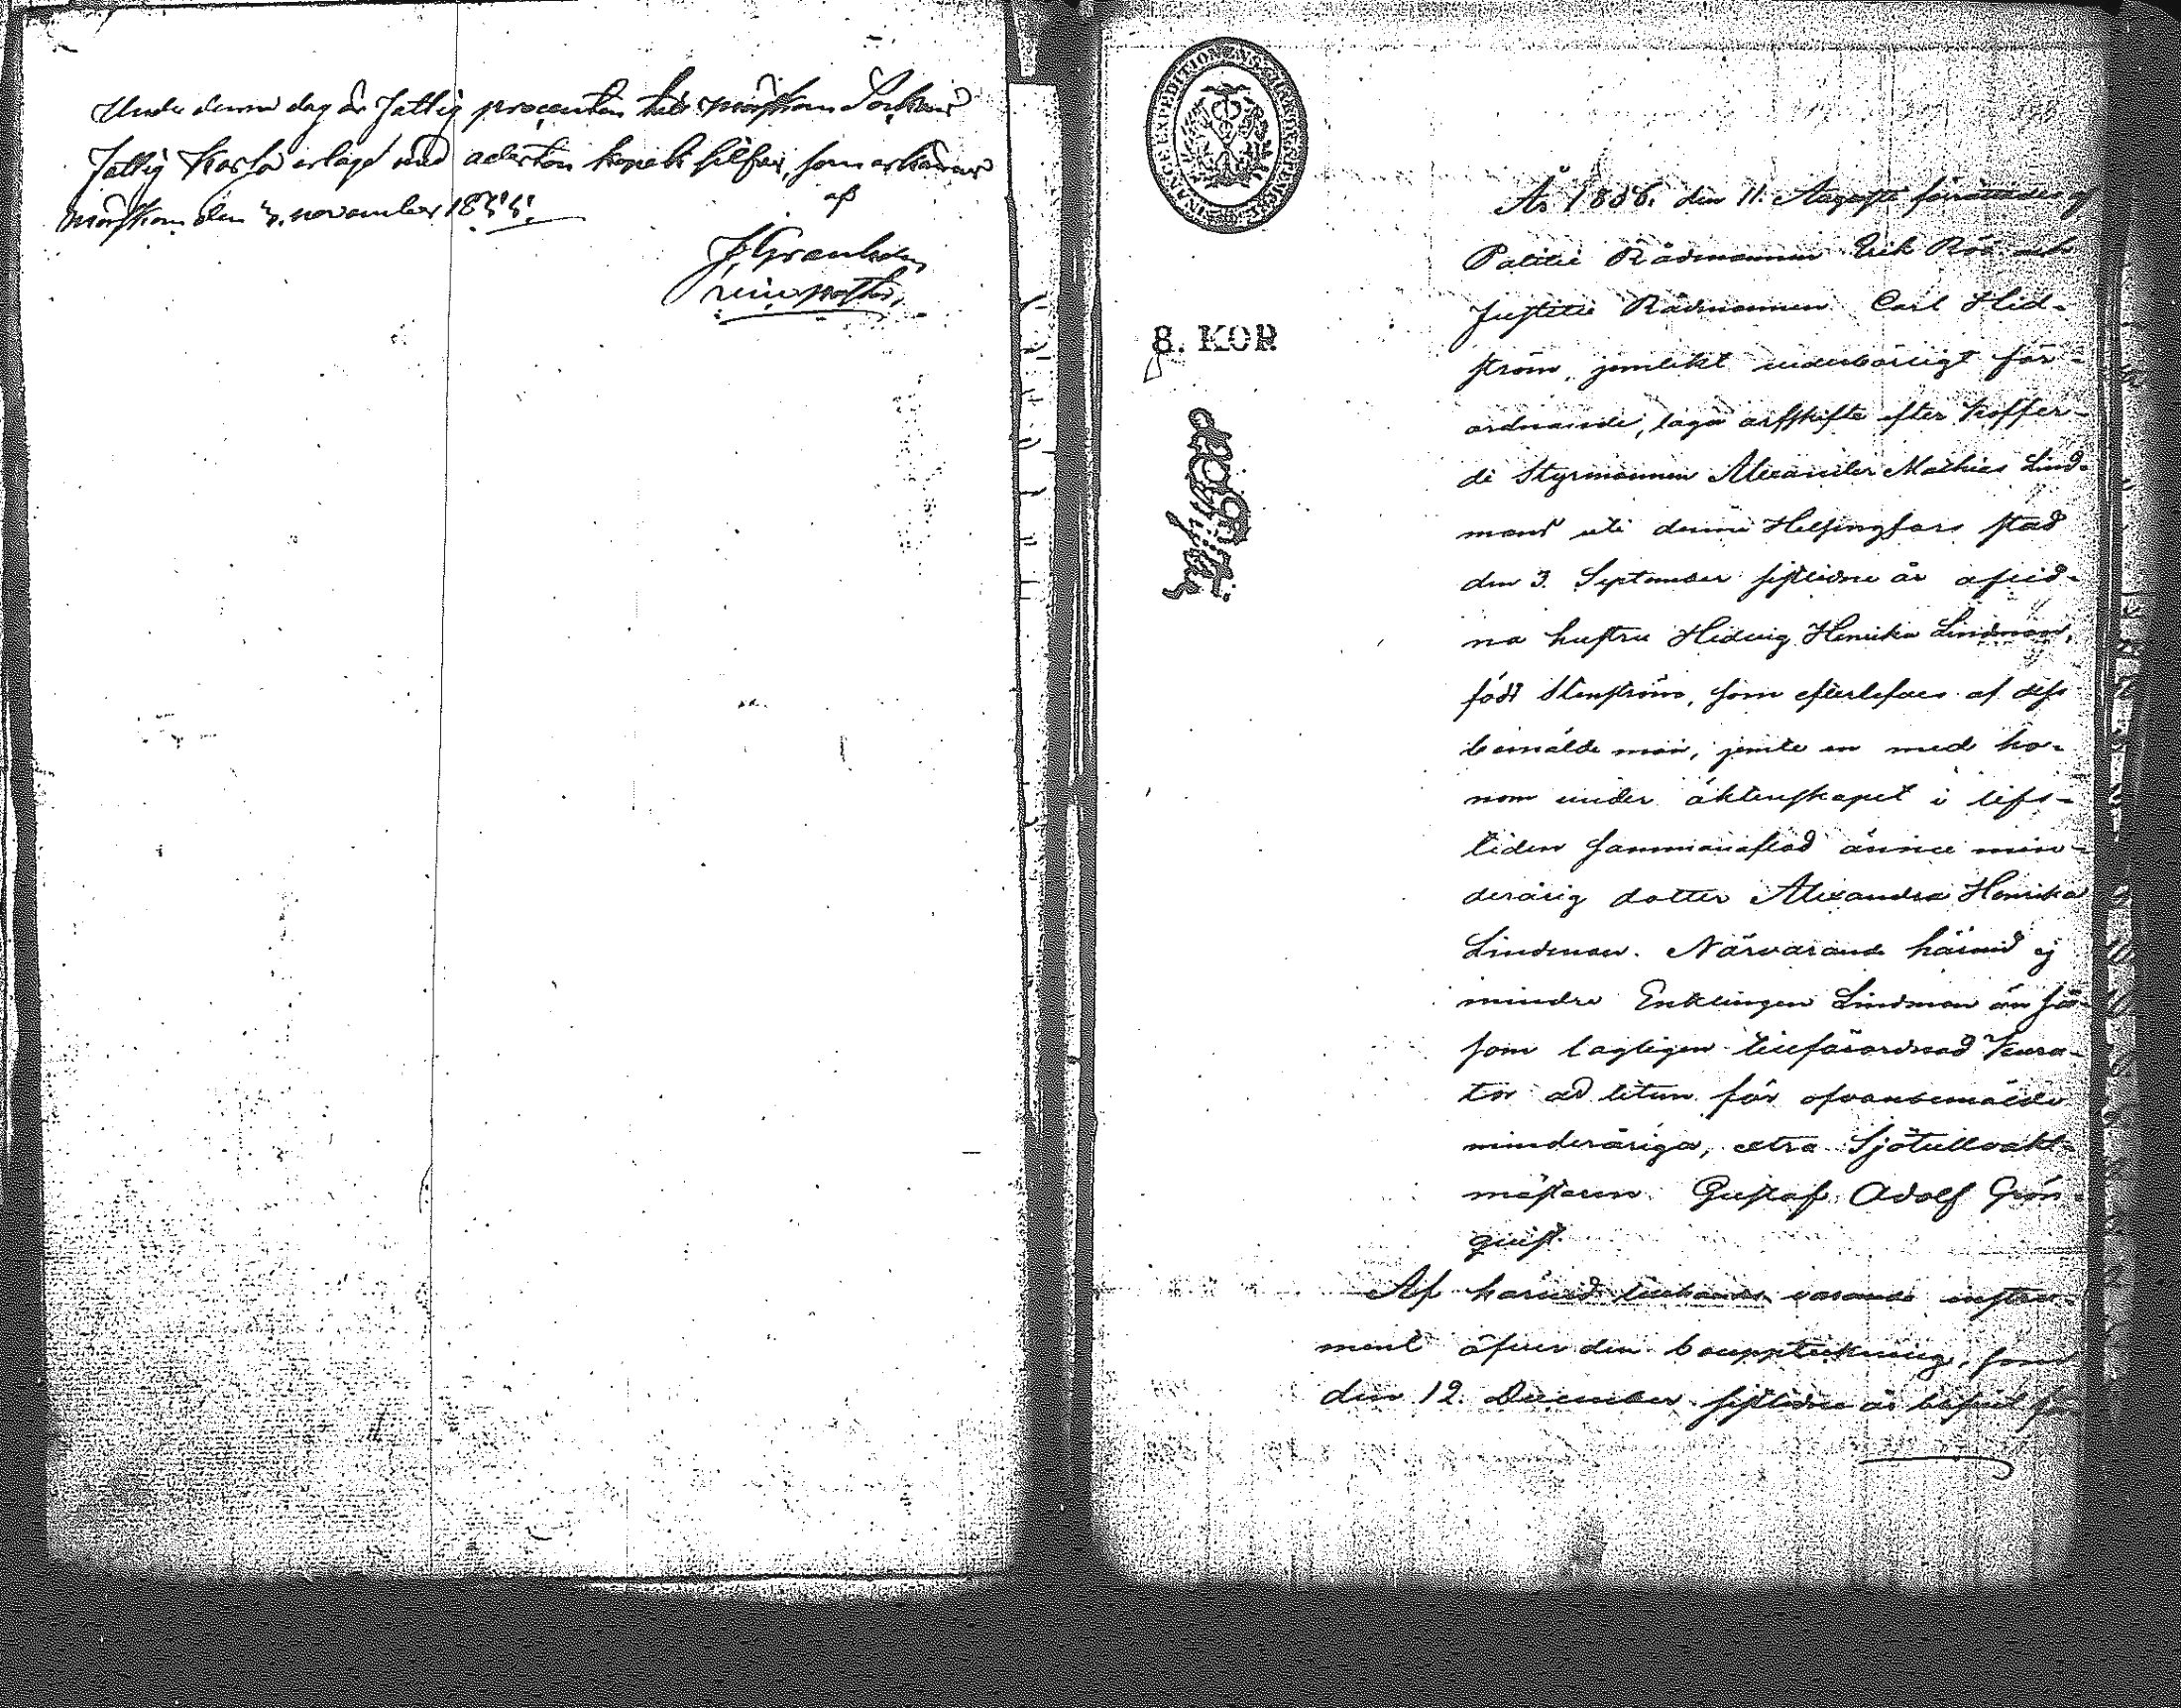 Under denna dag är fattig procenten till Mörskom Sockens
fattig kassa erlagd med aderton kopek silfver, som erkännes
Mörskom den 3. november 1855.
af
J. Granholm
8. KOR
År 1856. den 11. Augusti förrättades af
Politie Rådmannen Erik Röö och
Justitie Rådmannen Carl Hid-
ström, jemlikt vederbörligt för-
ordnande, laga arfskifte efter Koffer-
di Styrmannen Alexander Mathias Lind-
mans uti denna Helsingfors stad
den 3. September sistledne år aflid-
na hustru Hedvig Henrika Lindman,
född Stenström, som efterlefves af dess
bemälde man, jemte en med ho-
nom under äktenskapet i lifs-
tiden sammanaflad ännu min-
derårig dotter Alexandra Henrika
Lindman. Närvarande härvid ej
mindre Enklingen Lindman än så-
som lagligen tillförordnad Kura-
tor ad litem för ofvanbemälde
minderåriga, extra Sjötullvakt-
mästaren Gustaf Adolf Grön-
quist.
Af härvid tillhanda varande instru-
ment öfver den bouppteckning, som
den 12. December sistledne år blifvit